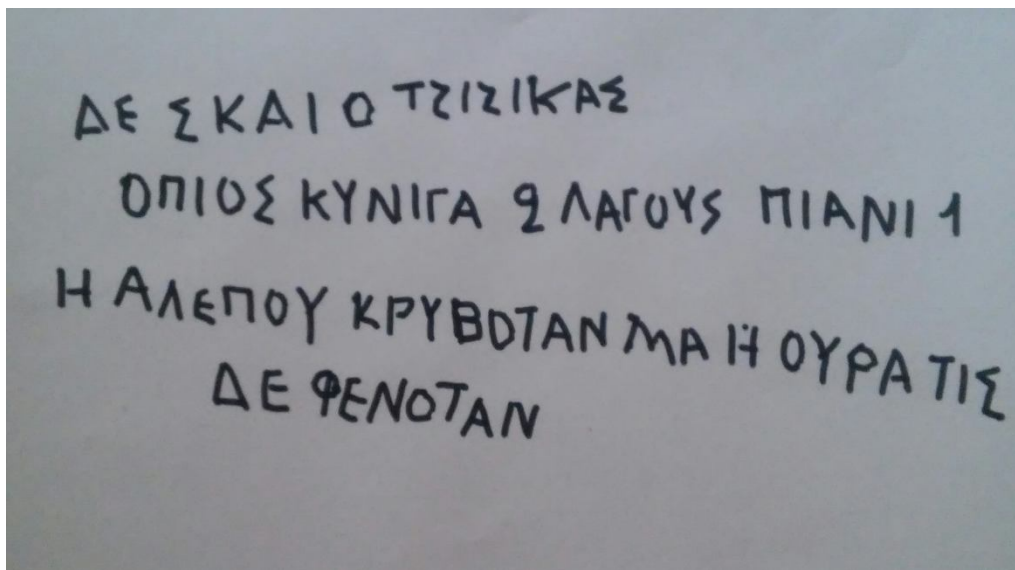 ΔΕ ΣΚΑΙ Ο ΤΖΙΖΙΚΑΣ
ΟΠΙΟΣ ΚΥΝΙΓΑ 2 ΛΑΓΟΥΣ ΠΙΑΝΙ 1
Η ΑΛΕΠΟΥ ΚΡΥΒΟΤΑΝ ΜΑ Η ΟΥΡΑ ΤΙΣ
ΔΕ ΦΕΝΟΤΑΝ